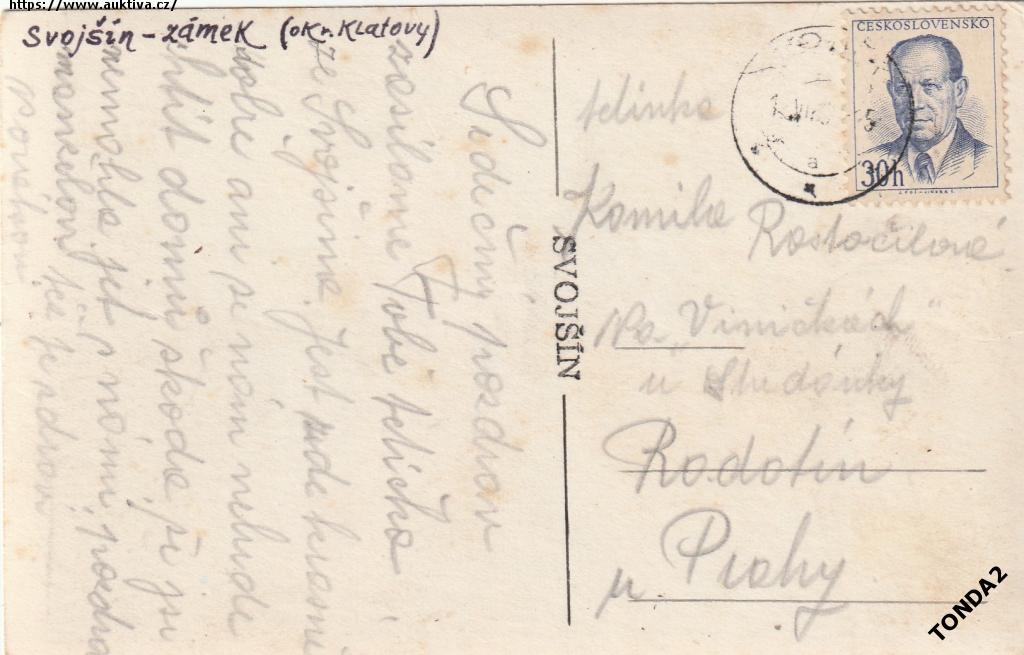 https://www.auktiva.cz/
Svojšín - zámek (okr. Klatovy)
Srdečný pozdrav
zasílame Tobě tetičko
ze Svojšína jest zde krásně
dobře ani se nám nebude
chtít domů škoda že jsi
nemohla jet s námi pozdra
manželovi též je zdráv
SVOJŠÍN
ČESKOSLOVENSKO
30h
a
Kamila
Rostočilová
Na „Viničkách"
u Studánky
Radotín
u Prahy
TONDA2